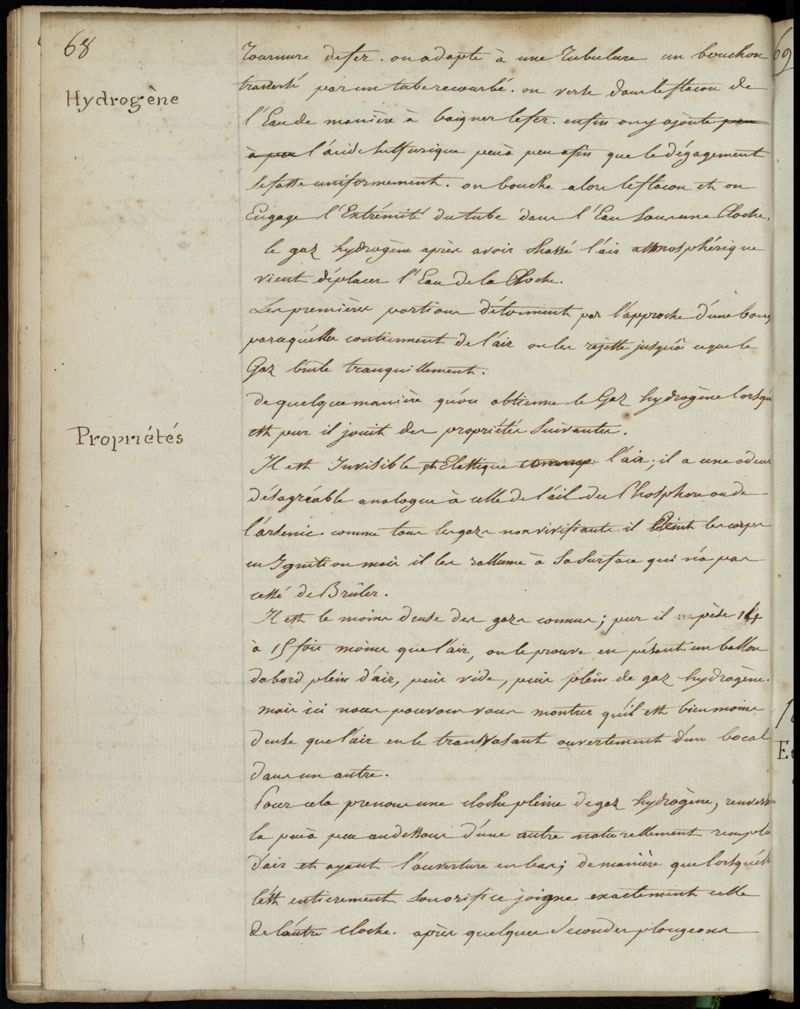 68
tournure de fer. on adapte à une tubulure un bouchon
Hydrogène
traversé par un tube recourbé. on verse dans le flacon de
l'Eau de manière à baigner le fer. enfin on y ajoute peu
à peu l'acide sulfurique peu à peu afin que le dégagement
se fasse uniformement. on bouche alors le flacon et on
Engage l'Extrémité du tube dans l'Eau sous une Cloche.
le gaz hydrogène après avoir chassé l'air atmosphérique
vient déplacer l'Eau de la Cloche.
Les premières portions détonnent par l'approche d'une boug
parcequ'elles contiennent de l'air on les rejette jusqu'à ce que le
Gaz brûle tranquillement.
de quelque manière qu'on obtienne le Gaz hydrogène lorsqu'
est pur il jouit des propriétés suivantes.
Propriétés
Il est Invisible et Elastique comme l'air; il a une odeur
désagréable analogue à celle de l'ail du Phosphore ou de
l'arsenic. comme tous les gazs non vivifiants il Eteint les corps
en Ignition mais il les rallume à sa surface qui n'a pas
cessé de Brûler.
Il est le moins dense des gazs connus; pur il pèse 14
à 15 fois moins que l'air, on le prouve en pésant un ballon
d'abord plein d'air, puis vide, puis plein de gaz hydrogène.
mais ici nous pouvons vous montrer qu'il est bien moins
dense que l'air en le transvasant ouvertement d'un bocal
dans un autre.
Pour cela prenons une cloche pleine de gaz hydrogène, renvers
la peu à peu au dessous d'une autre naturellement rempli
d'air et ayant l'ouverture en bas; de manière que lorsqu'ell
l'est entièrement son orifice joigne exactement celle
de l'autre cloche. après quelques Secondes plongeons
69